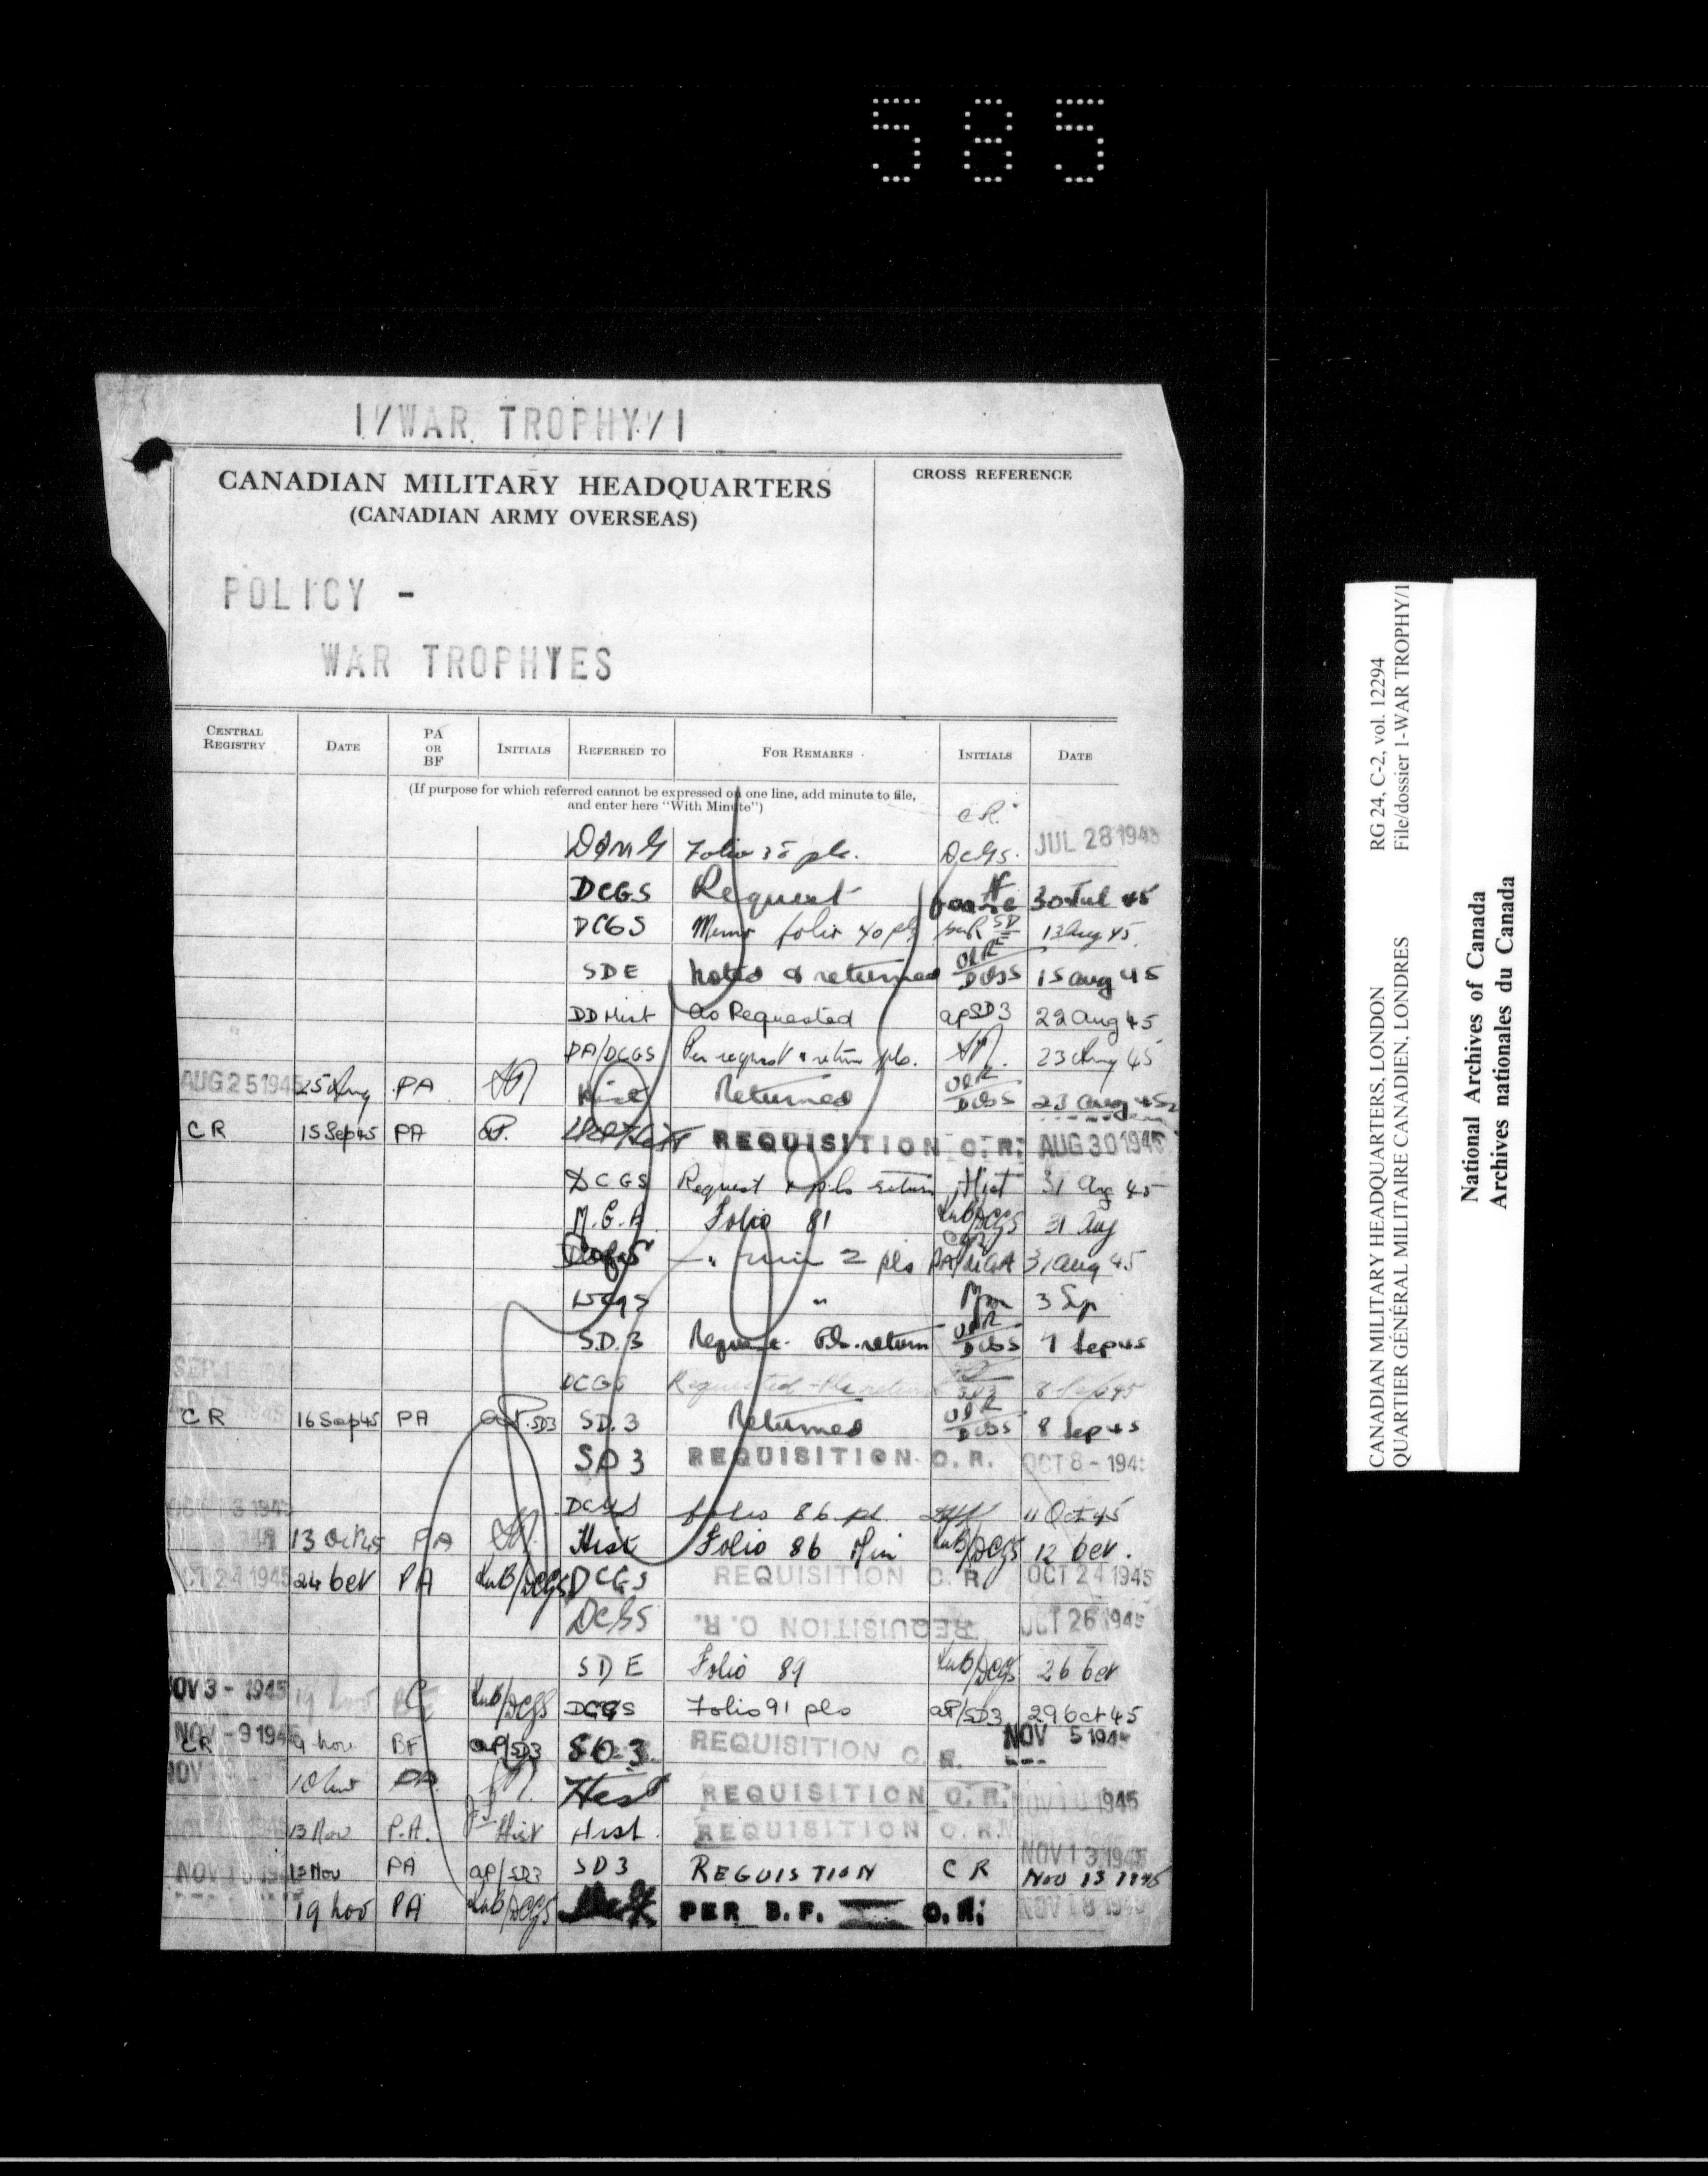 585
1/WAR TROPHY/1
CANADIAN MILITARY HEADQUARTERS
(CANADIAN ARMY OVERSEAS)
CROSS REFERENCE
POLICY -
WAR TROPHYES
CENTRAL REGISTRY DATE PA OR BF INITIALS REFERRED TO FOR REMARKS INITIALS DATE
(If purpose for which referred cannot be expressed on one line, add minute to file,
and enter here "With Minute")
C.R.
Folio 35 pls. DCGS. JUL 28 1945
DCGS Request 30 Jul 45
DCGS Memo folio 40 pls 13 Aug 45
SDE Noted & returned DCGS 15 aug 45
DD Hist As Requested ap SD3 22 aug 45
PA/DCGS Per request & return pls. 23 Aug 45
AUG 25 1945 25 Aug PA Hist Returned DCGS 23 aug 45
CR 15 Sep 45 PA REQUISITION C.R. AUG 30 1945
DCGS Request & pls return Hist 31 Aug 45
M.G.A. Folio 81 DCGS 31 Aug
" min 2 pls PA/MGA 31 aug 45
DCGS " 3 Sep
S.D.3 Request. Pls. return DCGS 7 Sep 45
DCGS Requested - Pls return SD3 8 Sep 45
CR 16 Sep 45 PA aP.SD3 SD.3 Returned DCGS 8 Sep 45
SD3 REQUISITION C.R. OCT 8 - 194
DCGS folio 86 pl. 11 Oct 45
13 Oct 45 PA Hist Folio 86 Min DCGS 12 Oct.
CT 24 1945 24 Oct PA DCGS DCGS REQUISITION C.R. OCT 24 1945
DCGS REQUISITION C.R. OCT 26 1945
SDE Folio 89 DCGS 26 Oct
OV 3 - 1945 19 Nov DCGS DCGS Folio 91 pls aP/SD3 29 Oct 45
NOV - 9 194 CR 9 Nov BF aP/SD3 SD.3. REQUISITION C.R. NOV 5 194
NOV PA. Hist REQUISITION C.R. 1945
13 Nov P.A. Hist Hist. REQUISITION C.R.
NOV 13 1945
NOV 13 Nov PA ap/SD3 SD3 REGUISTION CR Nov 13 1945
19 Nov PA DCGS PER B.F. C.R. NOV 18 194
CANADIAN MILITARY HEADQUARTERS, LONDON RG 24, C-2, vol. 12294
QUARTIER GÉNÉRAL MILITAIRE CANADIEN, LONDRES File/dossier 1-WAR TROPHY/1
National Archives of Canada
Archives nationales du Canada